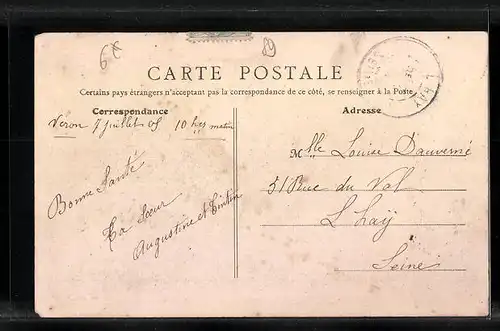 6€
89
CARTE POSTALE
Certains pays étrangers n'acceptant pas la correspondance de ce côté, se renseigner à la Poste.
Correspondance
Adresse
Veron 7 Juillet 05 10 hres matin
Bonne Santé
Ta Sœur
Augustine et Tintin
Mlle Louise Dauvergné
51 Rue du Val
L'Haÿ
Seine
L'HAY